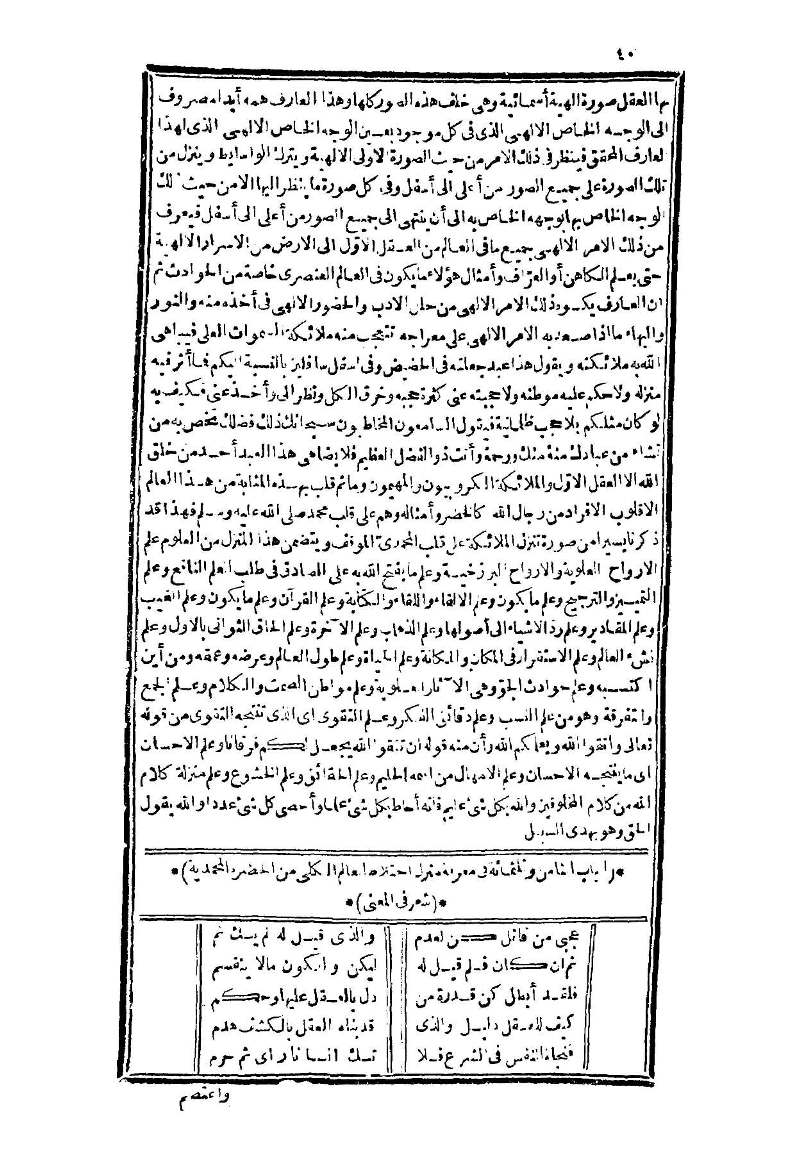 ٤٠
بها العقل صورة الهية أسمائية وهى خلف هذه الصور كلها وهذا العارف همه أبدا مصروف
الى الوجه الخاص الالهى الذى فى كل موجود بعين الوجه الخاص الالهى الذى لهذا
العارف المحقق فينظر فى ذلك الامر من حيث الصورة الاولى الالهية ويترك الوسايط وينزل من
تلك الصورة على جميع الصور من أعلى الى أسفل وفى كل صورة ما ينظر اليها الا من حيث ذلك
الوجه الخاص بها بوجهه الخاص به الى أن ينتهى الى جميع الصور من أعلى الى أسفل فيعرف
من ذلك الامر الالهى جميع ما فى العالم من العقل الاول الى الارض من الاسرار الالهية
حتى يعلم الكاهن أو العراف وأمثال هؤلاء ما يكون فى العالم العنصرى خاصة من الحوادث ثم
ان العارف يكسو ذلك الامر الالهى من حلل الادب والحضور الالهى فى أخذه منه والنور
والبهاء ما اذا صعد به الامر الالهى على معراجه تتعجب منه ملائكة السموات العلى فيباهى
الله به ملائكته ويقول هذا عبد جعلته فى الحضيض وفى أسفل سافلين بالنسبة اليكم فما أثر فيه
منزله ولا حكم عليه موطنه ولا حجبته عنى كثرة حجبه وخرق الكل ونظر الى وأخذ عنى فكيف به
لو كان مثلكم بلا حجب ظلمانية فيقول السامعون المخاطبون سبحانك ذلك فضلك تختص به من
تشاء من عبادك منة منك ورحمة وأنت ذو الفضل العظيم فلا يضاهى هذا العبد أحد من خلق
الله الا العقل الاول والملائكة الكروبيون والمهيمون وما ثم قلب بهذه المثابة من هذا العالم
الا قلوب الافراد من رجال الله كالخضر وأمثاله وهم على قلب محمد صلى الله عليه وسلم فهذا قد
ذكرنا يسيرا من صورة تنزل الملائكة على قلب المحمدى الموقف ويتضمن هذا المنزل من العلوم علم
الارواح العلوية والارواح البرزخية وعلم ما يفتح الله به على الصادق فى طلب العلم النافع وعلم
التمييز والترجيح وعلم ما يكون وعلم الالقاء واللقاء والكتابة وعلم القرآن وعلم ما يكون وعلم الغيب
وعلم المقادير وعلم رد الاشياء الى أصولها وعلم الذهاب وعلم الآخرة وعلم الحاق الثوانى بالاول وعلم
نشء العالم وعلم الاستقرار فى المكان والمكانة وعلم الحياة وعلم طول العالم وعرضه وعمقه ومن أين
اكتسبه وعلم حوادث الجو وهى الآثار العلوية وعلم مواطن الصمت والكلام وعلم الجمع
والتفرقة وهو من علم النسب وعلم دقائق الفكر وعلم التقوى اى الذى تنتجه التقوى من قوله
تعالى واتقوا الله ويعلمكم الله وأن منه قوله ان تتقوا الله يجعل لكم فرقانا وعلم الاحسان
اى ما ينتجه الاحسان وعلم الامهال من اسمه الحليم وعلم الحقائق وعلم الخشوع وعلم منزلة كلام
الله من كلام المخلوقين والله بكل شئ عليم فانه أحاط بكل شئ علما وأحصى كل شئ عددا والله يقول
الحق وهو يهدى السبيل
*(الباب الثامن وثلثمائة فى معرفة منزل اختلاط العالم الكلى من الحضرة المحمدية)*
*(شعر فى المعنى)*
عجبى من قائل كن لعدم والذى قيل له لم يك ثم
ثم ان كان فلم قيل له ليكن والكون ما لا ينقسم
فلقد أبطل كن قدرة من دل بالعقل عليها وحكم
كيف للعقل دليل والذى قد بناه العقل بالكشف هدم
فنجاة النفس فى الشرع فلا تك انسانا رأى ثم حرم
واعتصم